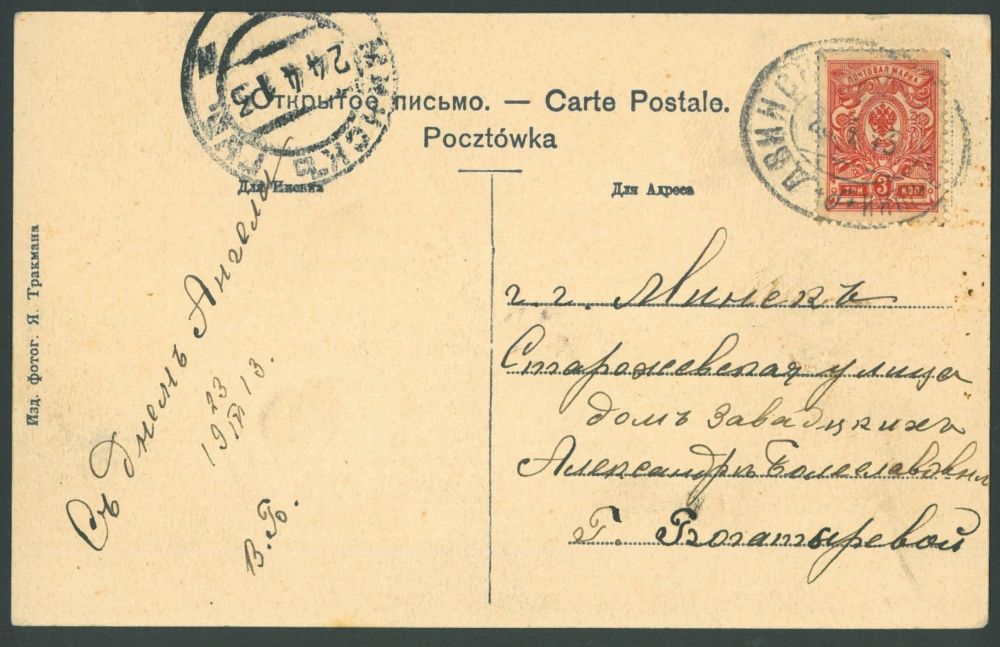 Открытое письмо. — Carte Postale.
Pocztówka
Для Письма
Для Адреса
Изд. фотог. Я. Тракмана
МИНСКЪ ГУБ
24 4 13
ДВИНСК
ПОЧТОВАЯ МАРКА
ТРИ 3 КОП
Съ днемъ Ангела
19 23/IV 13.
В. Б.
г. г. Минскъ
Сторожевская улица
домъ Завадцкихъ
Александръ Болеславовнѣ
Г. Богатыревой